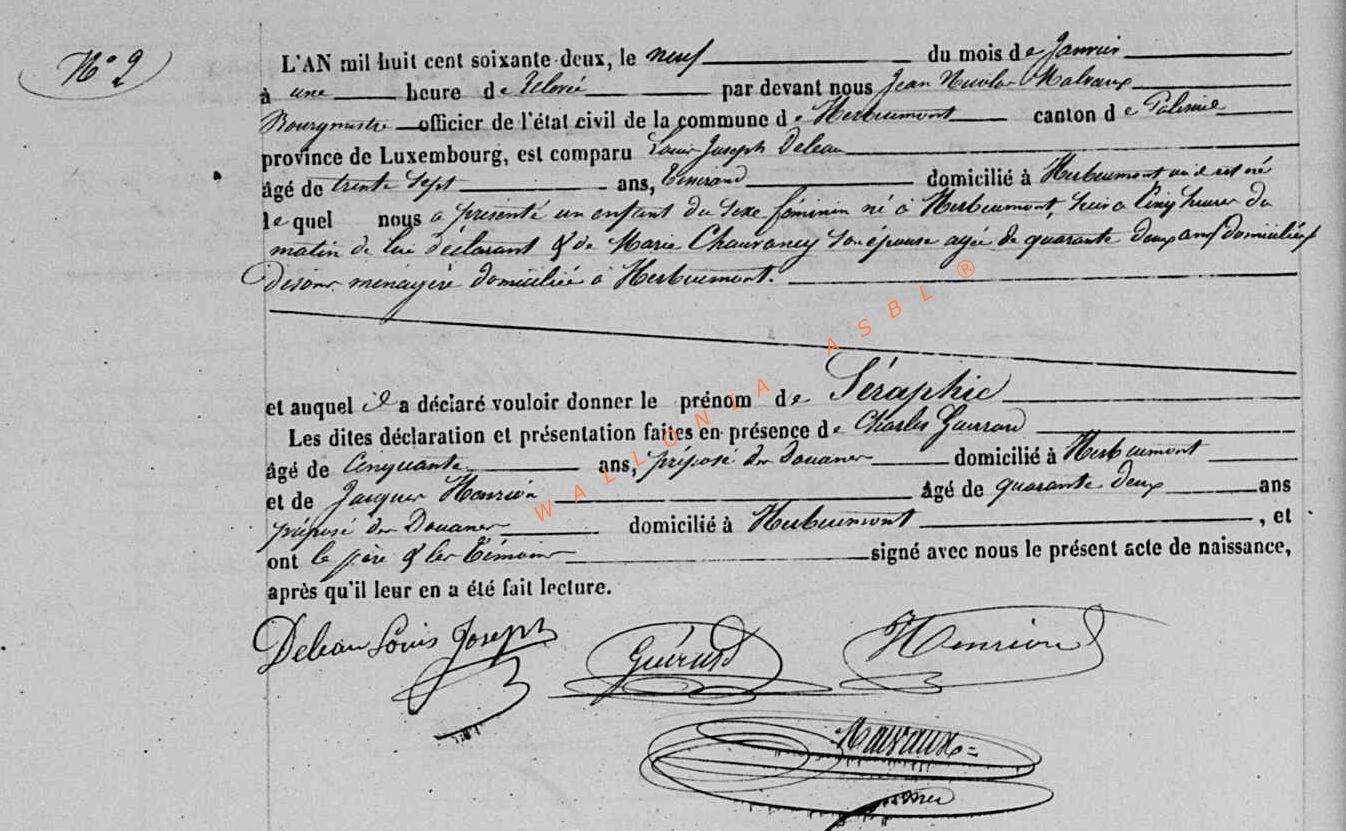 N° 2
L'AN mil huit cent soixante-deux, le neuf du mois de Janvier
à une heure de relevée par devant nous Jean Nicolas Malvaux
Bourgmestre officier de l'état civil de la commune de Herbeumont canton de Paliseul
province de Luxembourg, est comparu Louis Joseph Deleau
âgé de trente sept ans, Tisserand domicilié à Herbeumont où il est né
lequel nous a présenté un enfant du sexe féminin né à Herbeumont, hier à cinq heures du
matin de lui déclarant & de Marie Chauvancy son épouse agée de quarante deux ans domiciliés
disons ménagère domiciliée à Herbeumont.
et auquel il a déclaré vouloir donner le prénom de Séraphie
Les dites déclaration et présentation faites en présence de Charles Guérard
âgé de Cinquante ans, préposé des Douanes domicilié à Herbeumont
et de Jacques Henrion âgé de quarante deux ans
préposé des Douanes domicilié à Herbeumont, et
ont le père & les témoins signé avec nous le présent acte de naissance,
après qu'il leur en a été fait lecture.
Deleau Louis Joseph Guérard Henrion
Malvaux
WALLONIA ASBL ®